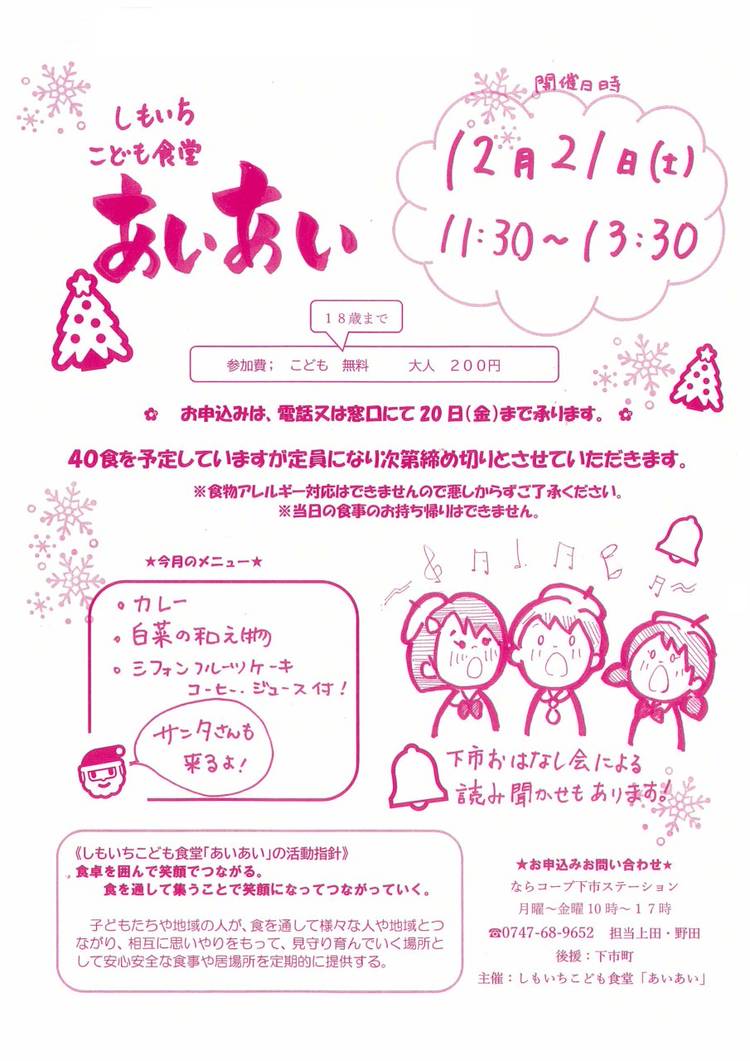 しもいち
こども食堂
あいあい
開催日時
12月21日(土)
11:30～13:30
18歳まで
参加費； こども 無料 大人 200円
✿ お申込みは、電話又は窓口にて20日(金)まで承ります。 ✿
40食を予定していますが定員になり次第締め切りとさせていただきます。
※食物アレルギー対応はできませんので悪しからずご了承ください。
※当日の食事のお持ち帰りはできません。
★今月のメニュー★
。カレー
。白菜の和え物
。シフォンフルーツケーキ
コーヒー、ジュース付！
サンタさんも
来るよ！
下市おはなし会による
読み聞かせもあります！
《しもいちこども食堂「あいあい」の活動指針》
食卓を囲んで笑顔でつながる。
食を通して集うことで笑顔になってつながっていく。
子どもたちや地域の人が、食を通して様々な人や地域とつ
ながり、相互に思いやりをもって、見守り育んでいく場所と
して安心安全な食事や居場所を定期的に提供する。
★お申込みお問い合わせ★
ならコープ下市ステーション
月曜～金曜10時～17時
☎0747-68-9652 担当上田・野田
後援：下市町
主催：しもいちこども食堂「あいあい」